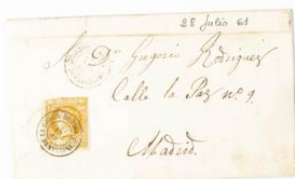 28 Julio 61
A Dn Gregorio Rodriguez
Calle la Paz nº 9.
Madrid.